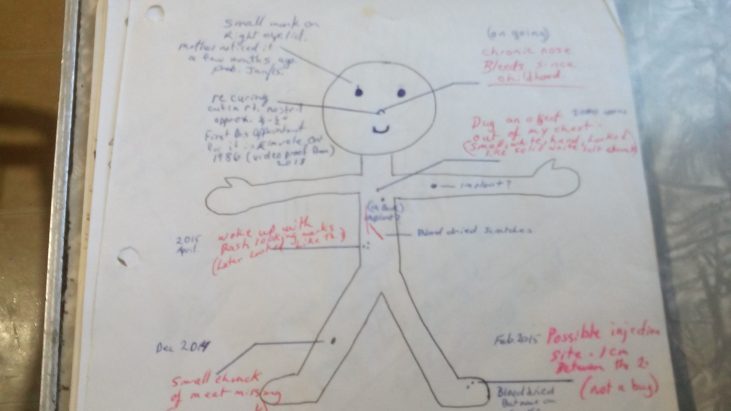 Small mark on
Right eye lid.
mother noticed it
a few months ago
prob. Jan/15.
(on going)
chronic nose
Bleeds since
childhood
re curing
rt. nostril
approx.
First Drs appointment
for it
1986 (video proof
2013
Dug an object
out of my chest
(small, white, hard, hooked
like solid white salt chunk)
implant?
(in Back)
implant?
2015
April.
woke up with
Rash looking marks
(Later looked like
Blood dried scratches
Dec 2014
Small chunk
of meat missing
Feb. 2015
Possible injection
site. 1 cm
Between the 2.
(not a bug)
Blood dried